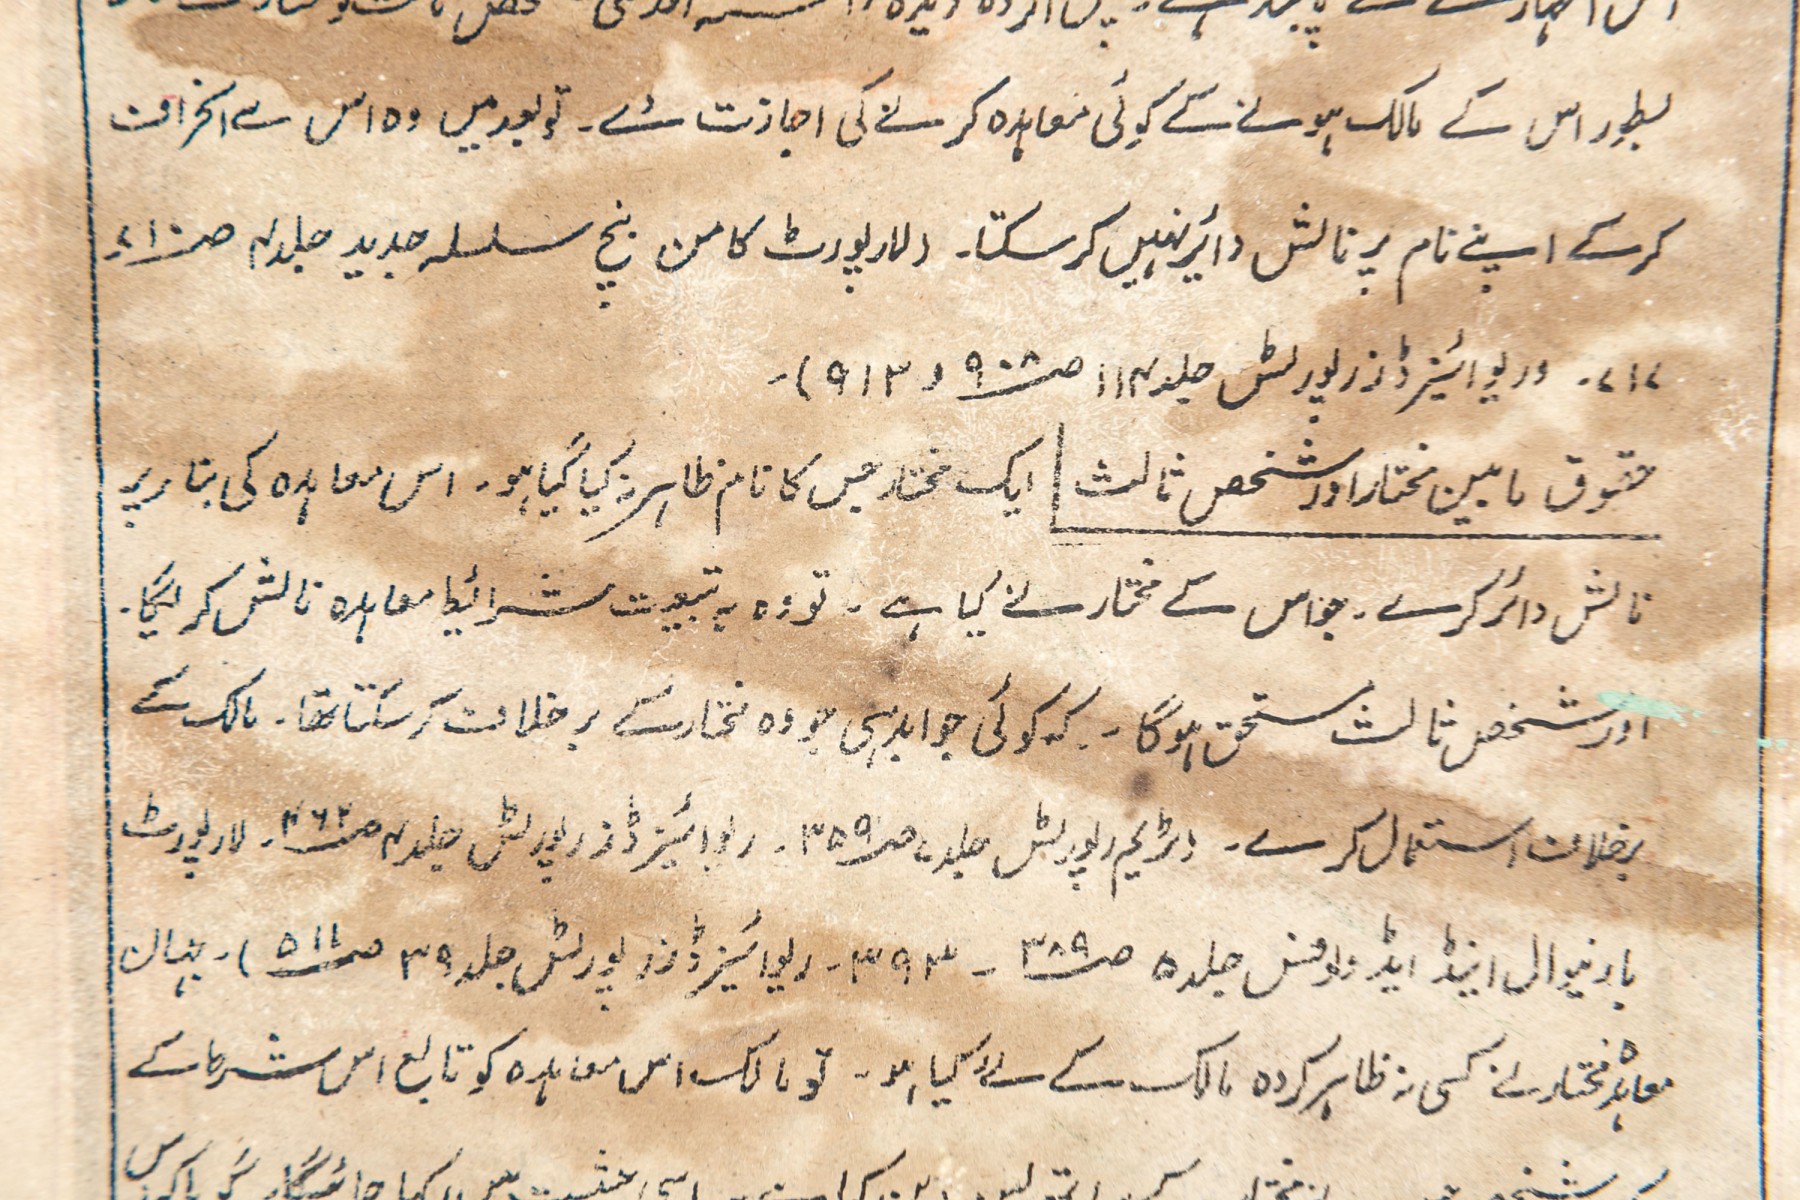 بطور اس کے مالک ہونے کے کوئی معاہدہ کرنے کی اجازت دے۔ تو بعد میں وہ اس سے انحراف
کر کے اپنے نام پر نالش دائر نہیں کر سکتا۔ (لا رپورٹ کامن بنچ سلسلہ جدید جلد ۴ صفحہ ۷۱۰
۷۱۷۔ و ریوائیزڈ رپورٹس جلد ۱۱۴ صفحہ ۹۰۸ و ۹۱۳)۔
حقوق مابین مختار اور شخص ثالث ایک مختار جس کا نام ظاہر نہ کیا گیا ہو۔ اس معاہدہ کی بنا پر
نالش دائر کرے۔ جو اس کے مختار نے کیا ہے۔ تو وہ بہ تبعیت شرائط معاہدہ نالش کریگا۔
اور شخص ثالث مستحق ہوگا۔ کہ کوئی جوابدہی جو وہ مختار کے برخلاف کر سکتا تھا۔ مالک کے
برخلاف استعمال کرے۔ رپورٹس جلد ۷ صفحہ ۳۵۹۔ ریوائیزڈ رپورٹس جلد ۴ صفحہ ۴۶۲۔ لا رپورٹ
بارنیوال اینڈ ایڈولفس جلد ۵ صفحہ ۳۸۹ - ۳۹۳۔ ریوائیزڈ رپورٹس جلد ۳۹ صفحہ ۵۱۱)۔ یہاں
معاہدہ مختار نے کسی نہ ظاہر کردہ مالک کے لئے کیا ہو۔ تو مالک اس معاہدہ کو تابع اس شرط کے